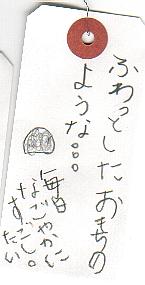 ふわっとしたおもちの
ような...
毎日
なごやかに
すごし
たい。